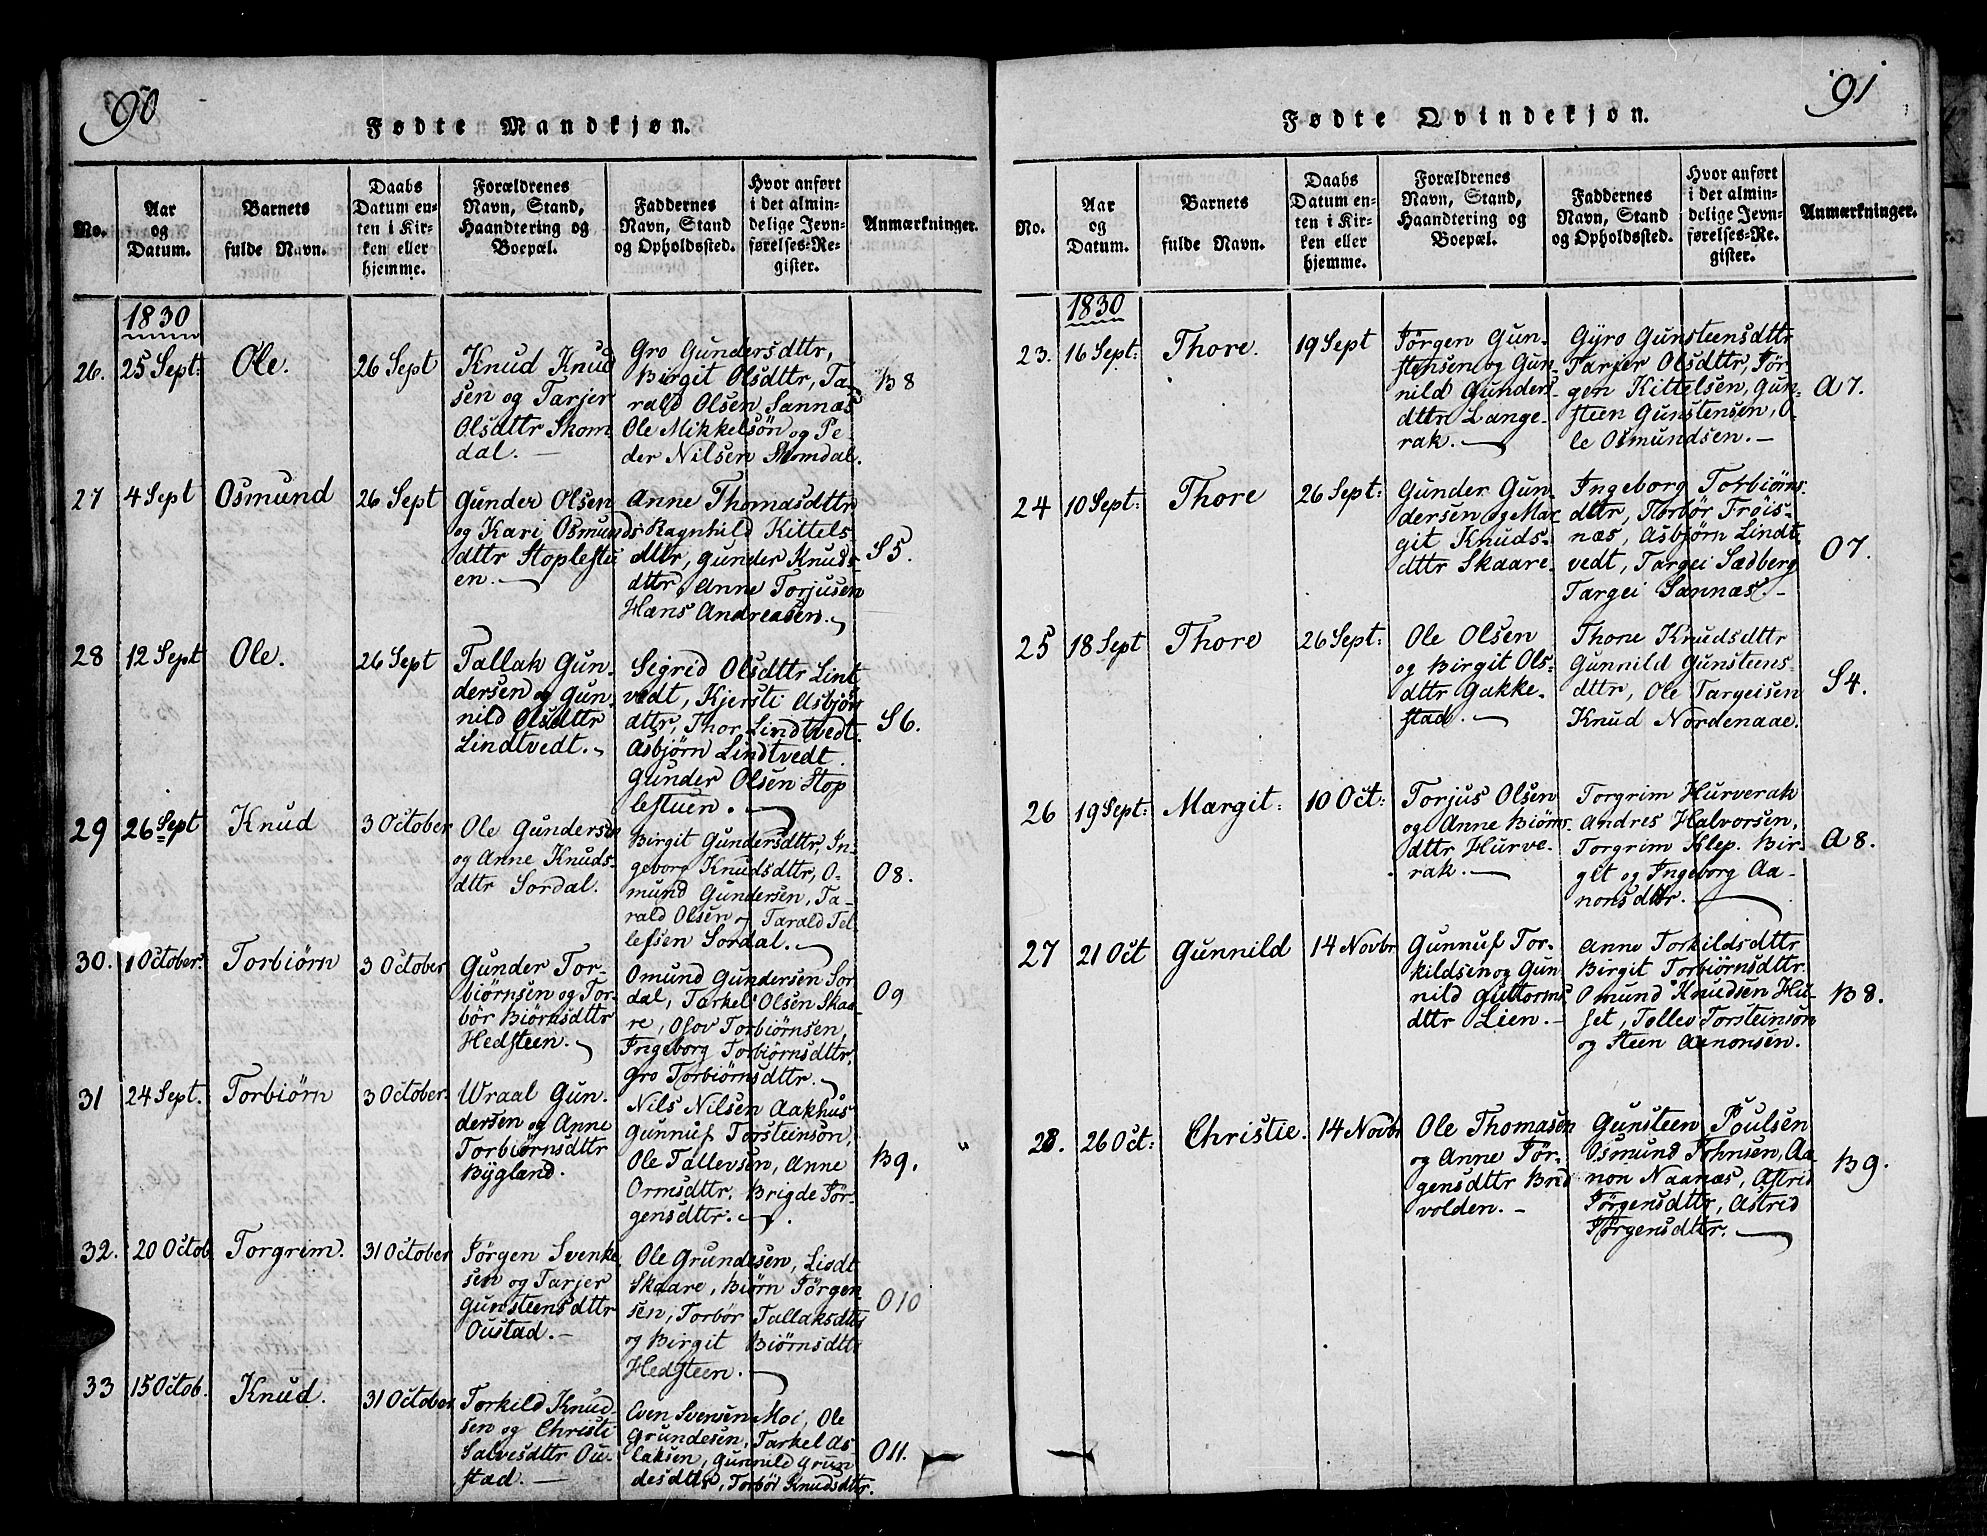 90
Fødte Mandkjøn.
No.
Aar
og
Datum.
Barnets
fulde Navn.
Daabs
Datum en-
ten i Kir-
ken eller
hjemme.
Forældrenes
Navn, Stand,
Haandtering og
Boepæl.
Faddernes
Navn, Stand
og Opholdssted.
Hvor anført
i det almin-
delige Jevn-
førelses-Re-
gister.
Anmærkninger.
1830
26.
25 Sept:
Ole.
26 Sept
Knud Knud
sen og Tarjer
Olsdttr Skom
dal. —
Gro Gundersdttr,
Birgit Olsdttr, Ta-
rald Olsen Sannæs
Ole Mikkelson og Pe-
der Nilsen Skomdal.
B8
27
4 Sept
Osmund
26 Sept
Gunder Olsen
og Kari Osmunds
dttr Stoplestu
en.
Anne Thomasdttr
Ragnhild Kittels-
dttr, Gunder Knuds
dttr, Anne Torjusen
Hans Andreasen.
S5.
28
12 Sept
Ole.
26 Sept
Tallak Gun-
dersen og Gun-
nild Olsdttr
Lindtvedt.
Sigrid Olsdttr Lint
vedt, Kjersti Asbjørn
dttr, Thor Lindtvedt.
Asbjørn Lindtvedt.
Gunder Olsen Stop
lestuen.
S6.
29
26 Sept
Knud
3 October
Ole Gundersen
og Anne Knuds-
dttr Sordal.
Birgit Gundersdttr, In-
geborg Knudsdttr, O-
mund Gundersen, Ta-
rald Olsen og Tarald Tel
lefsen Sordal.
O8.
30.
1 October:
Torbiørn
3 October
Gunder Tor-
biørnsen og Tor-
bør Biørnsdttr
Hedsteen.
Omund Gundersen Sor-
dal, Tarkel Olsen Skaa-
re, Osov Torbiørnsen,
Ingeborg Torbiørnsdttr,
Gro Torbiørnsdttr.
O9
31
24 Sept.
Torbiørn
3 October.
Wraal Gun-
dersen og Anne
Torbiørnsdttr
Bygland.
Nils Nilsen Aakhus
Gunnuf Torsteinson,
Ole Tallevsen, Anne
Ormsdttr, Brigde Jør-
gensdttr.
B9.
32.
20 Octob
Torgrim.
31 October
Jørgen Svenke
sen og Tarjer
Gunsteensdttr
Oustad. —
Ole Grundesen, Lindt
Skaare, Biørn Jørgen-
sen, Torbør Tallaksdttr
og Birgit Biørnsdttr
Hedsteen.
O10
33
15 Octob.
Knud.
31 October
Torkild Knud-
sen og Christi
Salvesdttr Ou-
stad. —
Even Svensen Moi, Ole
Grundesen, Tarkel As-
laksen, Gunnild Grun
desdttr, Torbør Knudsdttr.
O11.
91
Fødte Qvindekjøn.
No.
Aar
og
Datum.
Barnets
fulde Navn.
Daabs
Datum en-
ten i Kir-
ken eller
hjemme.
Forældrenes
Navn, Stand,
Haandtering og
Boepæl.
Faddernes
Navn, Stand
og Opholdssted.
Hvor anført
i det almin-
delige Jevn-
førelses-Re-
gister.
Anmærkninger.
1830
23.
16 Sept:
Thore.
19 Sept
Jørgen Gun-
stensen og Gun-
nild Gunders-
dttr Lange-
rak.
Gyro Gunsteensdttr
Tarjer Olsdttr, Jør-
gen Kittelsen, Gun-
steen Gunstensen, O-
le Osmundsen. —
A7.
24
10 Sept:
Thore
26 Sept:
Gunder Gun-
dersen og Mar-
git Knuds-
dttr Skaare.
Ingeborg Torbiørns
dttr, Torbør Frøis-
næs, Asbjørn Lindt-
vedt, Targei Sædberg
Targei Sannæs. —
O7.
25
18 Sept
Thore
26 Sept:
Ole Olsen
og Birgit Ols-
dttr Gakke-
stad. —
Thone Knudsdttr
Gunnild Gunsteens-
dttr, Ole Targeisen
Knud Nordenaae.
S4.
26
19 Sept:
Margit:
10 Oct:
Torjus Olsen
og Anne Biørns.
dttr Hurve-
rak. —
Torgrim Hurverak
Andres Halvorsen,
Torgrim Klep. Bir-
git og Ingeborg Aa-
nonsdttr.
A8.
27
21 Oct
Gunnild
14 Novbr
Gunnuf Tor-
kildsen og Gun
nild Guttorms
dttr Lien. —
Anne Torkildsdttr
Birgit Torbiørnsdttr
Omund Knudsen Hu-
set, Tellev Torsteinson
og Steen Aanonsen.
B8.
28.
26 Oct:
Christie.
14 Novbr
Ole Thomasen
og Anne Jør-
gensdttr Brid
volden. —
Gunsteen Poulsen
Osmund Johnsen, Aa-
non Naanæs, Astrid
Jørgensdttr, Astrid
Jørgensdttr.
B9.